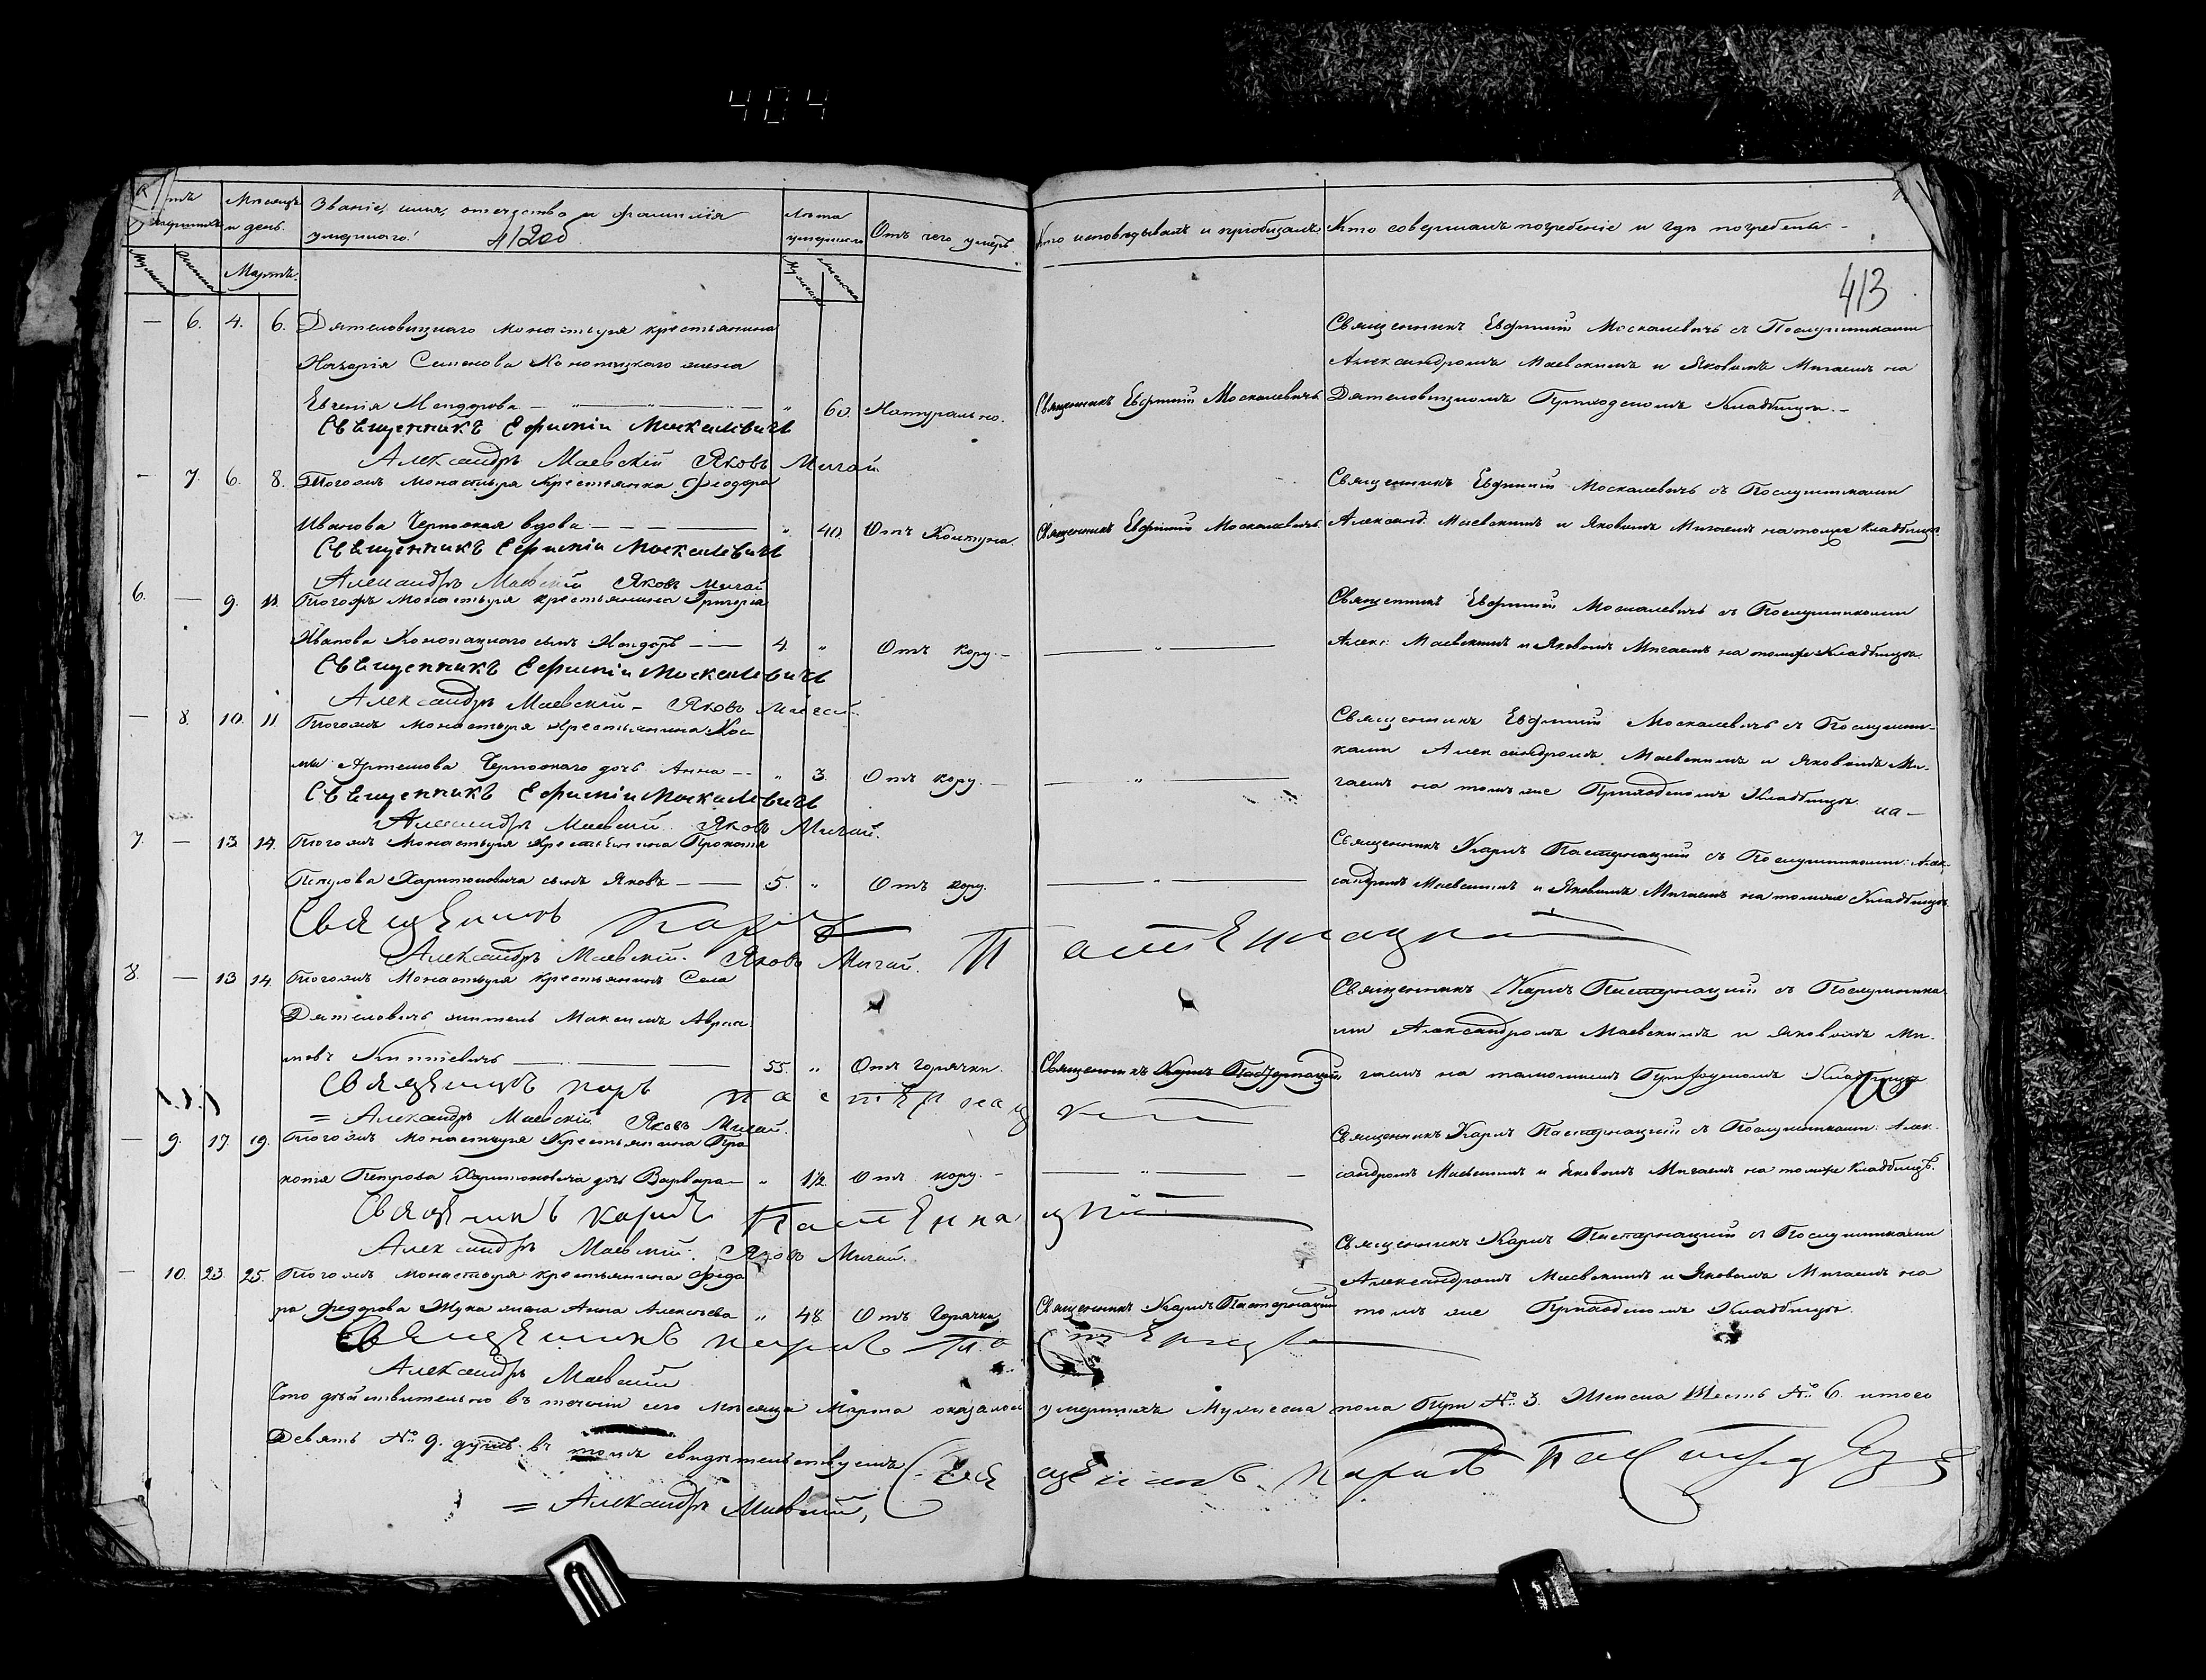 404
Мѣсяцъ и день.
Званіе, имя, отечество и фамилія умершаго.
412об
Лѣта умершаго
Отъ чего умеръ.
Кто исповѣдывалъ и пріобщалъ
Кто совершалъ погребеніе и гдѣ погребены.
Мартъ.
413
— 6. 4. 6. Дятеловицкаго монастыря крестьянина
Семенова Конопацкаго жена
Евгенія — „ 60. Натурально. Священникъ Евфимій Москалевичъ.
Священникъ Евфимій Москалевичъ съ Послушниками
Александромъ Маевскимъ и Яковомъ Мигаемъ на
Дятеловицкомъ Приходскомъ Кладбищѣ. —
Священникъ Ефимій Москалевичъ
Александръ Маевскій Яковъ Мигай
— 7. 6. 8. Тогожъ монастыря крестьянка Феодора
Иванова вдова — „ 40. Отъ Колтуна. Священникъ Евфимій Москалевичъ.
Священникъ Евфимій Москалевичъ съ Послушниками
Александ: Маевскимъ и Яковомъ Мигаемъ на томже кладбищѣ.
Священникъ Ефимій Москалевичъ
Александръ Маевскій Яковъ Мигай
6. — 9. 11. Тогожъ монастыря крестьянина Григорія
Иванова Конопацкаго сынъ — 4. „ Отъ кору. — „ —
Священникъ Евфимій Москалевичъ съ Послушниками
Алекс: Маевскимъ и Яковомъ Мигаемъ на томже Кладбищѣ.
Священникъ Ефимій Москалевичъ
Александръ Маевскій — Яковъ Мигай.
— 8. 10. 11. Тогожъ монастыря крестьянина Кос-
мы Артемова дочь Анна — „ 3. Отъ кору. — „ —
Священникъ Евфимій Москалевичъ съ Послушни-
ками Александромъ Маевскимъ и Яковомъ Ми-
гаемъ на томъ же Приходскомъ Кладбищѣ.
Священникъ Ефимій Москалевичъ
Александръ Маевскій. Яковъ Мигай.
7. — 13. 14. Тогожъ Монастыря крестьянина Прокопія
Петрова Харитоновича сынъ Яковъ — 5. „ Отъ кору. — „ —
Священникъ Карпъ Пастернацкій съ Послушниками: Алек-
сандромъ Маевскимъ и Яковомъ Мигаемъ на томже Кладбищѣ.
Священникъ Карпъ Пастернацкій
Александръ Маевскій. Яковъ Мигай.
8. — 13. 14. Тогожъ Монастыря крестьянинъ Села
Дятеловичъ житель Максимъ Авраа-
мовъ — 55. „ Отъ горячки. Священникъ Карпъ Пастернацкій
Священникъ Карпъ Пастернацкій съ Послушника-
ми Александромъ Маевскимъ и Яковомъ Ми-
гаемъ на тамошнемъ Приходскомъ Кладбищѣ
Священникъ Карпъ Пастернацкій
= Александръ Маевскій Яковъ Мигай.
— 9. 17. 19. Тогожъ Монастыря Крестьянина Про-
копія Петрова Харитоновича дочь Варвара — „ 1/2. Отъ кору. — „ —
Священникъ Карпъ Пастернацкій съ Послушниками: Алек-
сандромъ Маевскимъ и Яковомъ Мигаемъ на томже кладбищѣ.
Священникъ Карпъ Пастернацкій
Александръ Маевскій. Яковъ Мигай.
— 10. 23. 25. Тогожъ монастыря крестьянина Федо-
ра Федорова Жука жена Анна Алексѣева „ 48. Отъ Горячки Священникъ Карпъ Пастернацкій
Священникъ Карпъ Пастернацкій съ Послушниками
Александромъ Маевскимъ и Яковомъ Мигаемъ на
томъ же Приходскомъ Кладбищѣ.
Священникъ Карпъ
Александръ Маевскій
Что дѣйствительно въ теченіи сего мѣсяца Марта оказалось умершихъ Мужеска пола Три № 3. Женска Шесть № 6. итого
Девять № 9. душъ въ томъ свидѣтельствуемъ Священникъ Карпъ
= Александръ Маевскій,